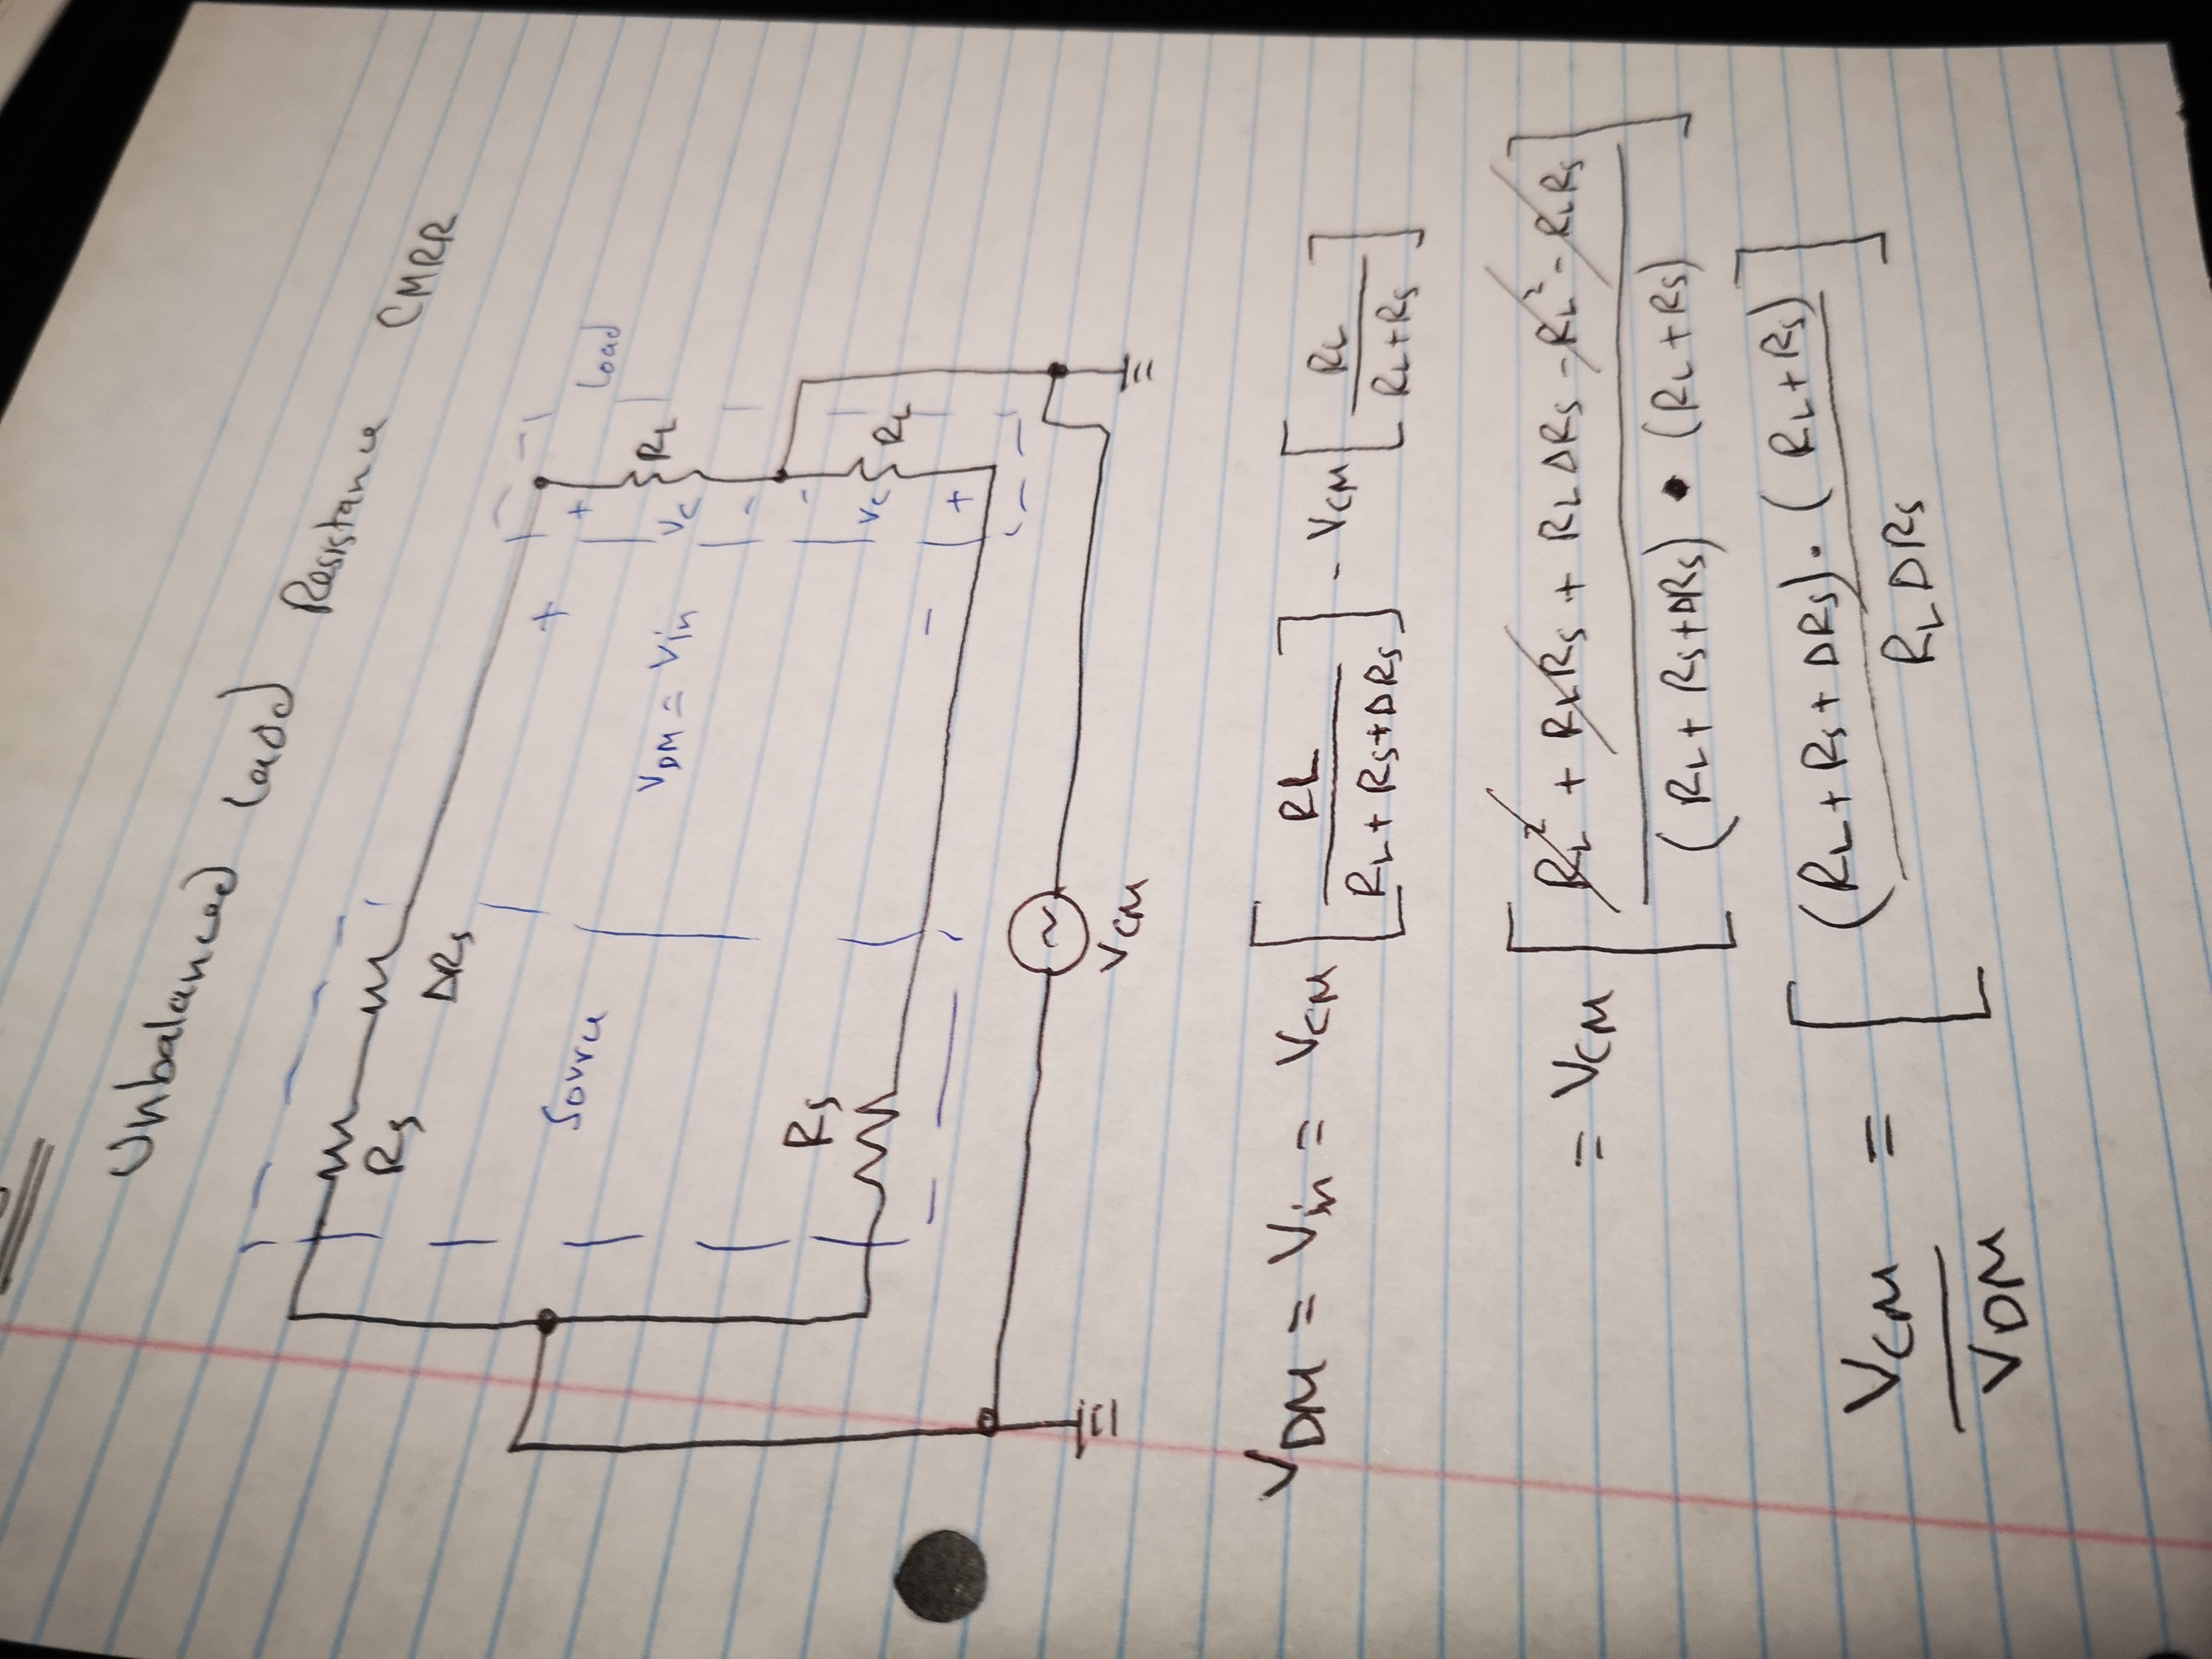 Unbalanced Load Resistance CMRR
Rs
ΔRs
Source
Rs
+
VDM = Vin
-
+
Vc
-
-
Vc
+
RL
RL
Load
VCM
VDM = Vin = VCM [RL / (RL + Rs + ΔRs)] - VCM [RL / (RL + Rs)]
= VCM [RL² + RLRs + RLΔRs - RL² - RLRs / (RL + Rs + ΔRs) • (RL + Rs)]
VCM / VDM = [(RL + Rs + ΔRs) · (RL + Rs) / RLΔRs]